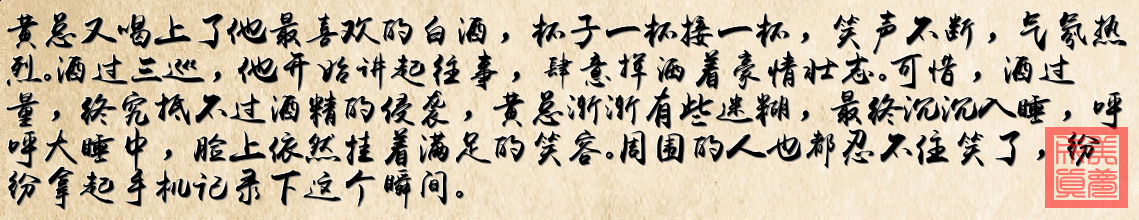 黄总又喝上了他最喜欢的白酒，杯子一杯接一杯，笑声不断，气氛热
烈。酒过三巡，他开始讲起往事，肆意挥洒着豪情壮志。可惜，酒过
量，终究抵不过酒精的侵袭，黄总渐渐有些迷糊，最终沉沉入睡，呼
呼大睡中，脸上依然挂着满足的笑容。周围的人也都忍不住笑了，纷
纷拿起手机记录下这个瞬间。
美梦成真